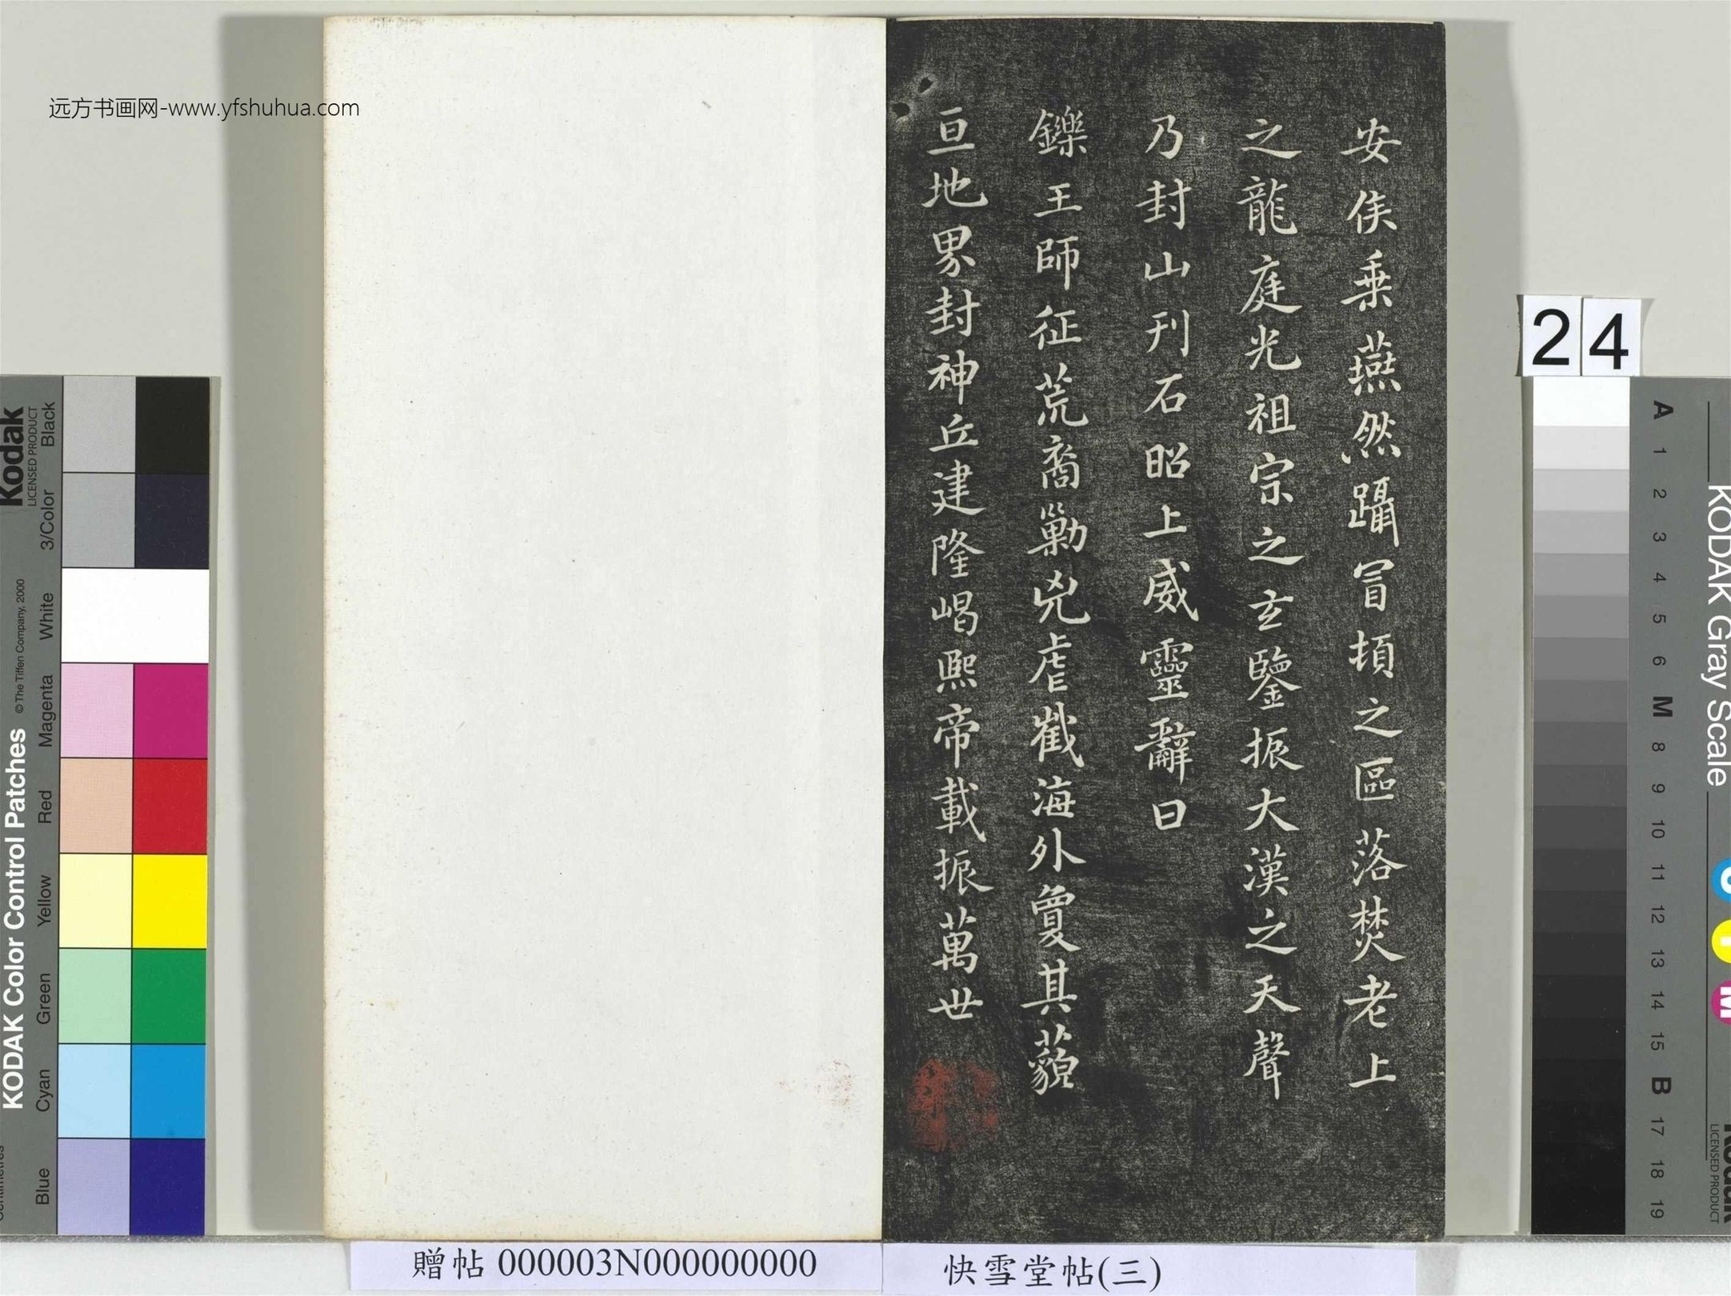 安侯乘燕然躡冒頓之區落焚老上
之龍庭光祖宗之玄鑒振大漢之天聲
乃封山刊石昭上威靈辭曰
鑠王師征荒裔勦凶虐截海外敻其藐
亘地界封神丘建隆嵑熙帝載振萬世
远方书画网-www.yfshuhua.com
贈帖 000003N000000000
快雪堂帖(三)
24
Kodak
LICENSED PRODUCT
KODAK Color Control Patches
© The Tiffen Company, 2000
Black
3/Color
White
Magenta
Red
Yellow
Green
Cyan
Blue
KODAK Gray Scale
A
1
2
3
4
5
6
M
8
9
10
11
12
13
14
15
B
17
18
19
C
Y
M
LICENSED PRODUCT